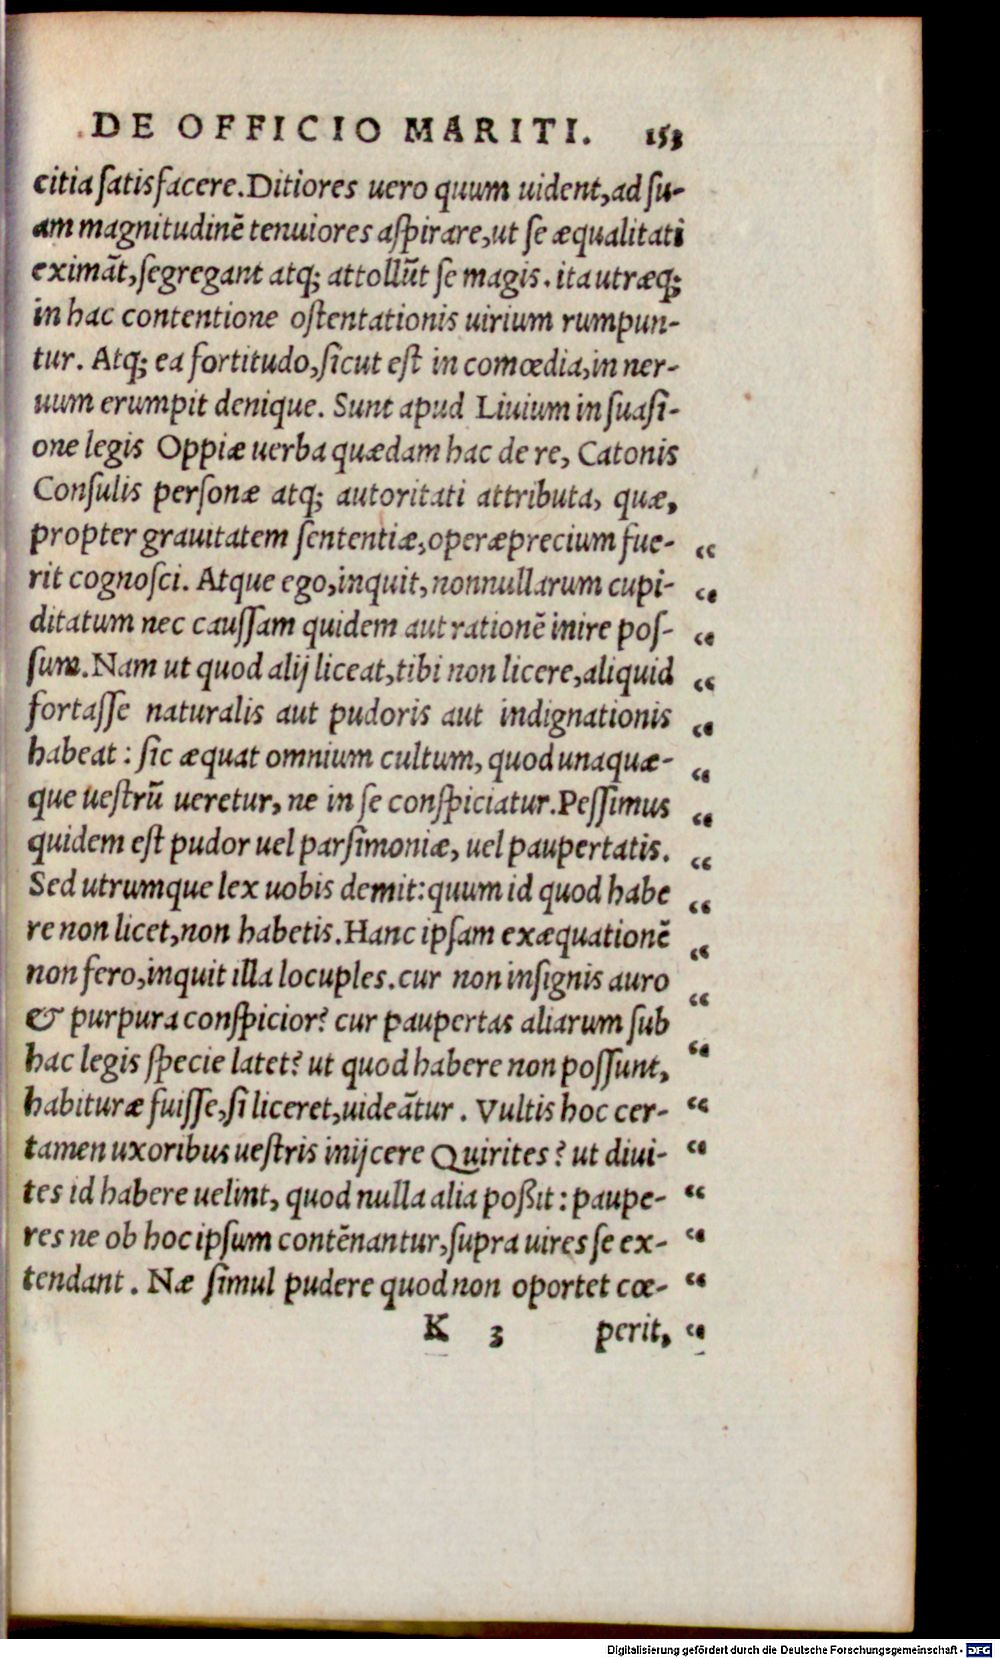 DE OFFICIO MARITI. 153
citia satisfacere. Ditiores uero quum uident, ad su-
am magnitudinē tenuiores aspirare, ut se æqualitati
eximāt, segregant atq; attollūt se magis. ita utræq;
in hac contentione ostentationis uirium rumpun-
tur. Atq; ea fortitudo, sicut est in comœdia, in ner-
uum erumpit denique. Sunt apud Liuium in suasi-
one legis Oppiæ uerba quædam hac de re, Catonis
Consulis personæ atq; autoritati attributa, quæ,
propter grauitatem sententiæ, operæprecium fue- “
rit cognosci. Atque ego, inquit, nonnullarum cupi- “
ditatum nec caussam quidem aut rationē inire pos- “
sum. Nam ut quod alij liceat, tibi non licere, aliquid “
fortasse naturalis aut pudoris aut indignationis “
habeat: sic æquat omnium cultum, quod unaquæ- “
que uestrū ueretur, ne in se conspiciatur. Pessimus “
quidem est pudor uel parsimoniæ, uel paupertatis. “
Sed utrumque lex uobis demit: quum id quod habe “
re non licet, non habetis. Hanc ipsam exæquationē “
non fero, inquit illa locuples. cur non insignis auro “
& purpura conspicior? cur paupertas aliarum sub “
hac legis specie latet? ut quod habere non possunt, “
habituræ fuisse, si liceret, uideātur. Vultis hoc cer- “
tamen uxoribus uestris inijcere Quirites? ut diui- “
tes id habere uelint, quod nulla alia poßit: paupe- “
res ne ob hoc ipsum contēnantur, supra uires se ex- “
tendant. Næ simul pudere quod non oportet cœ- “
K 3 perit, “
Digitalisierung gefördert durch die Deutsche Forschungsgemeinschaft - DFG